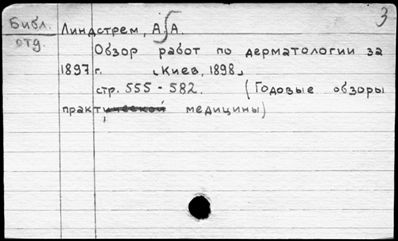 3
Библ. Линдстрем, А.А.
отд. Обзор работ по дерматологии за
1897 г. "Киев, 1898"
стр. 555 - 582. (Годовые обзоры
практической медицины)